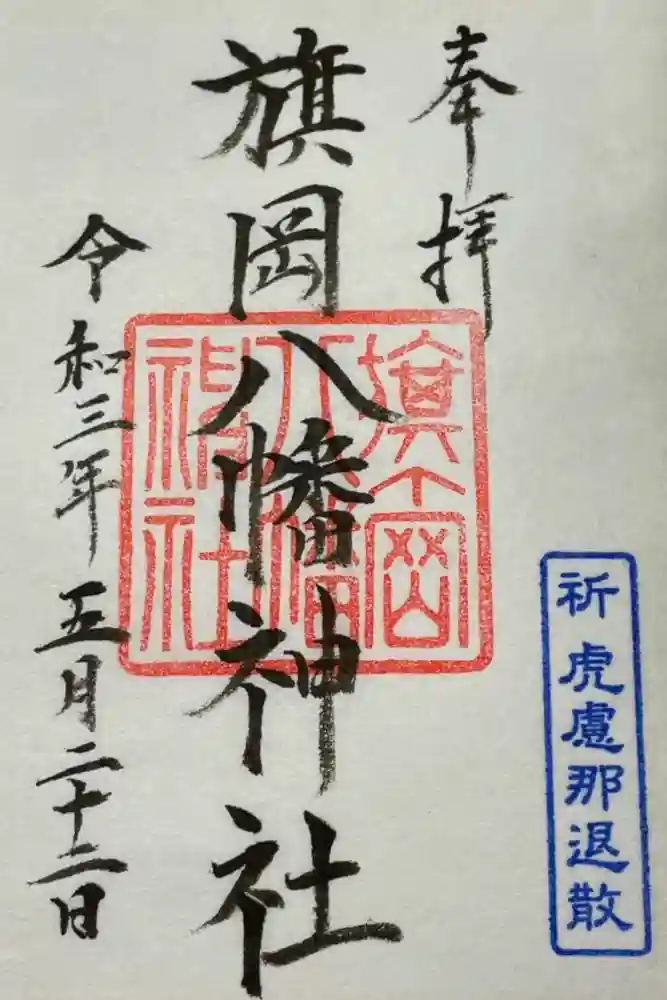 奉拝
祈 虎慮那退散
旗岡八幡神社
旗岡
八幡
神社
令和三年五月二十三日